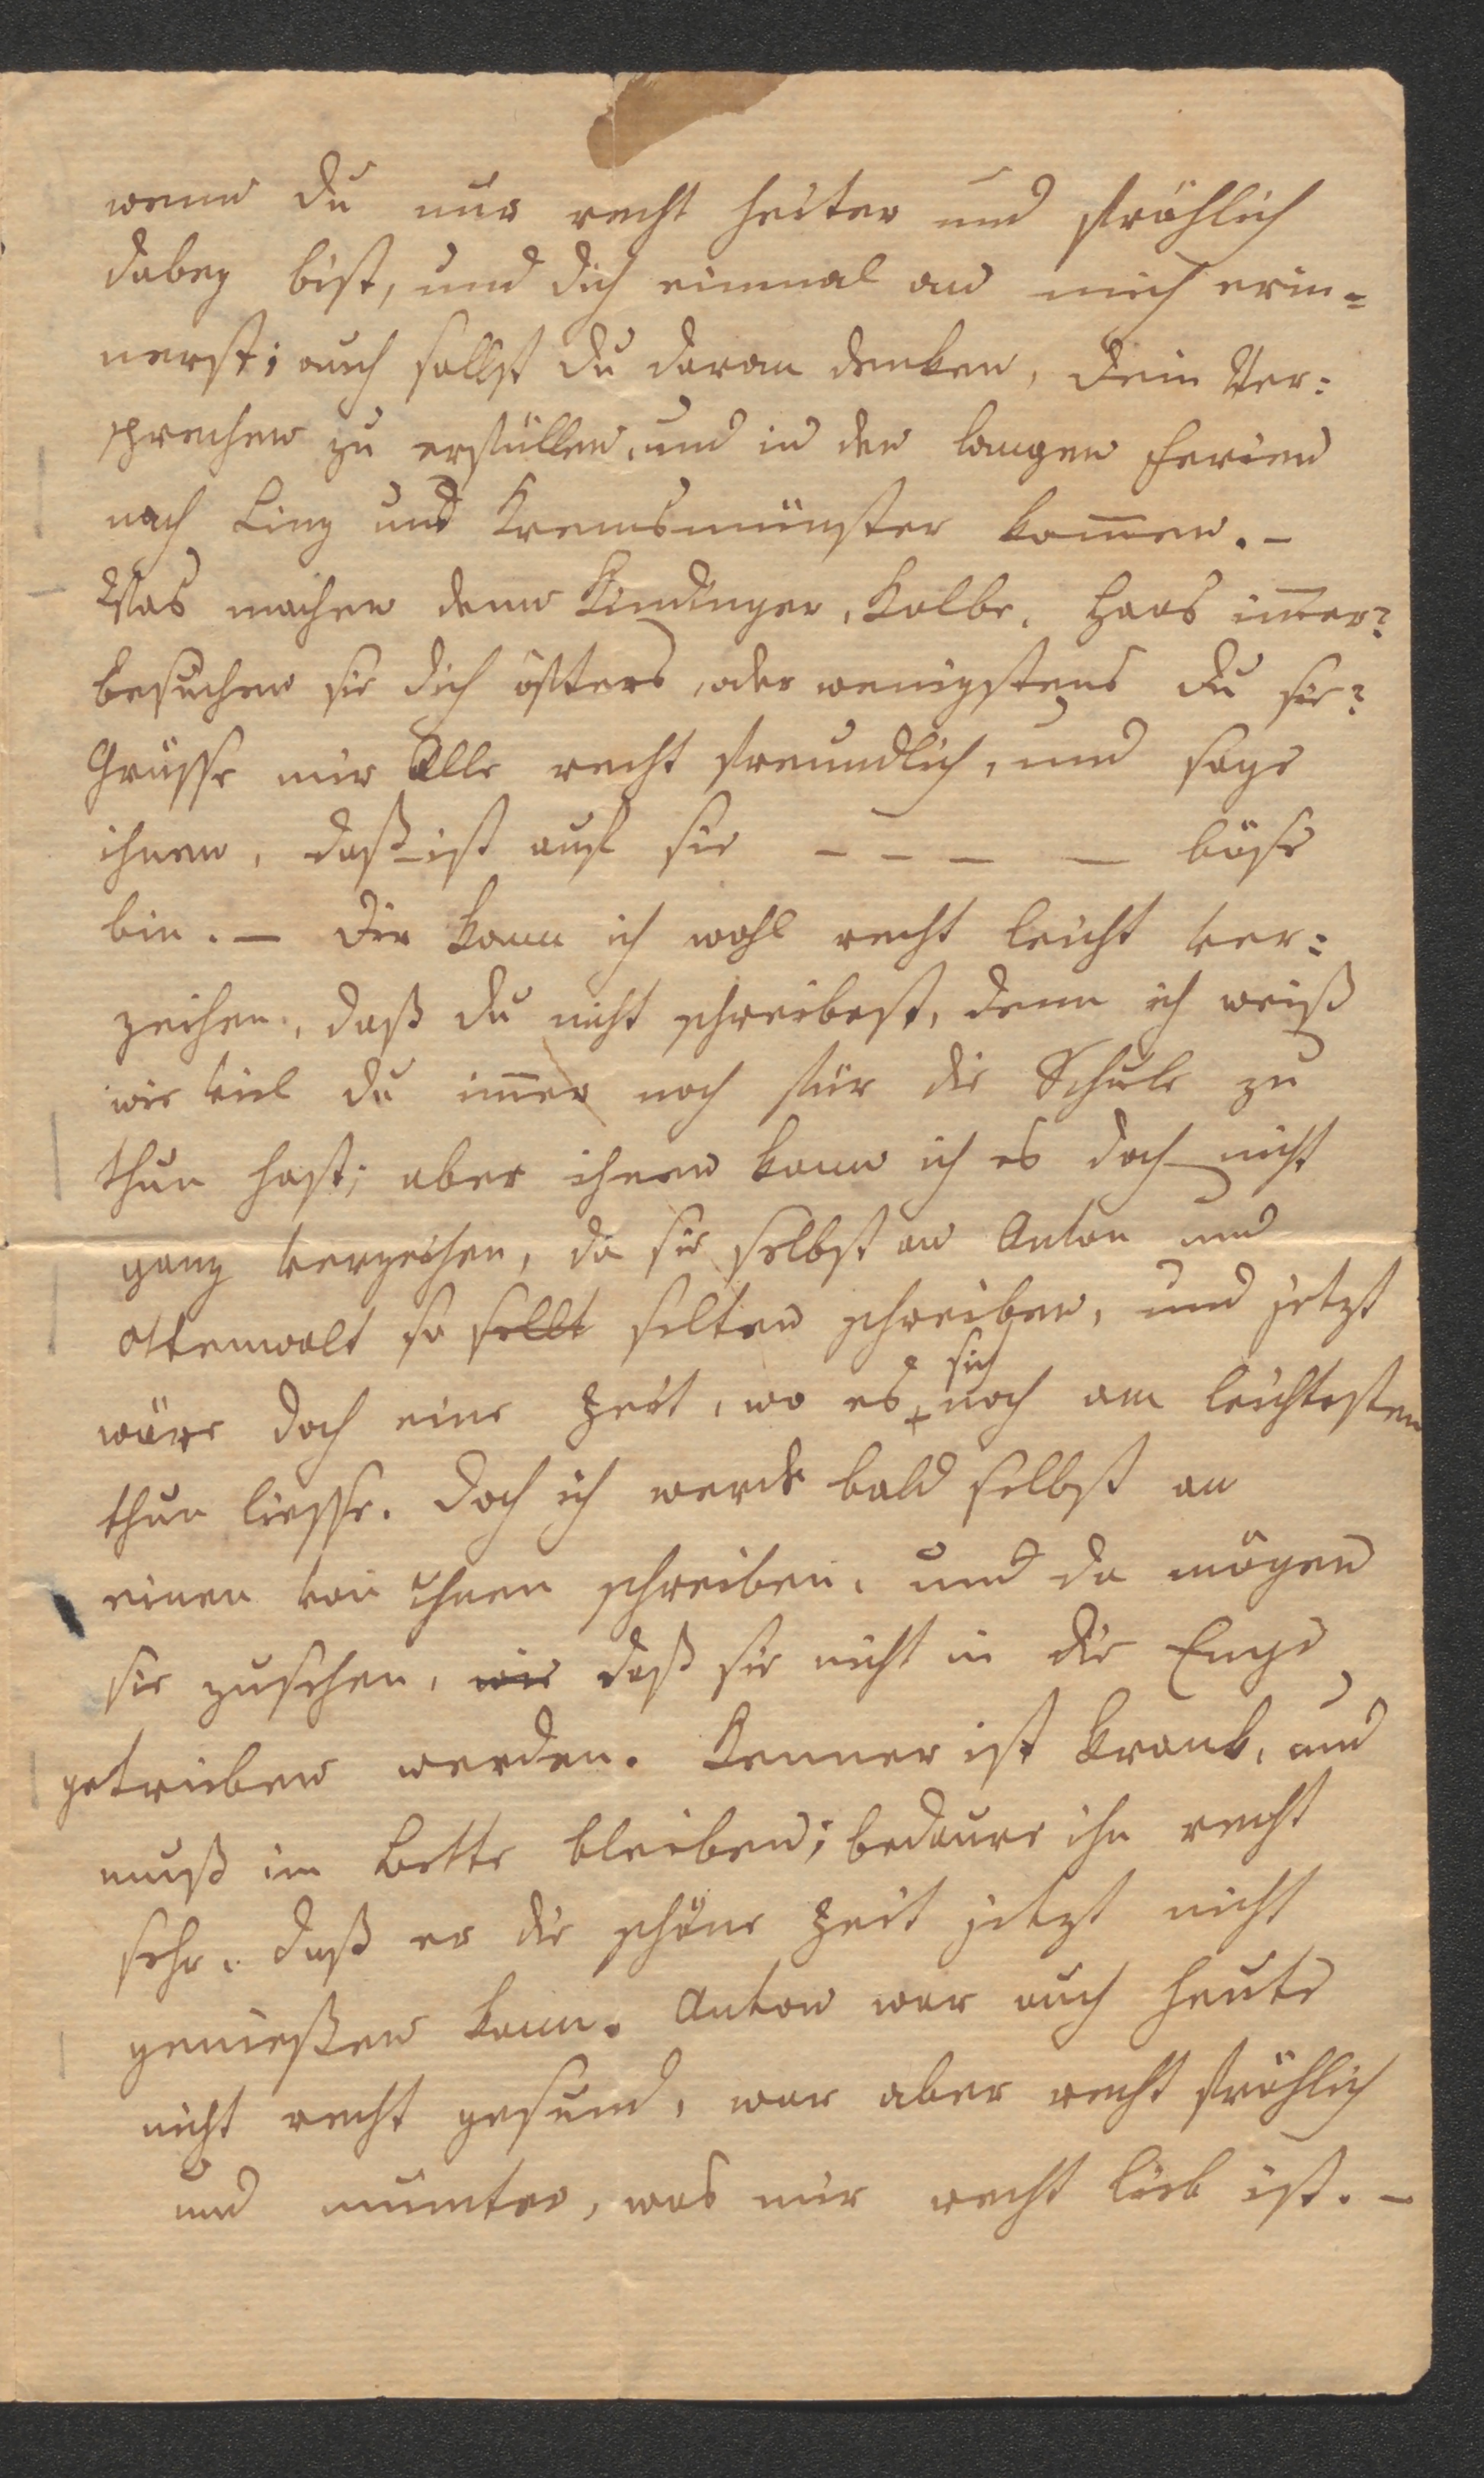 wenn du nur recht heiter und fröhlich
dabey bist, und dich einmal an mich erin=
nerst; auch sollst du daran denken, dein Ver=
sprechen zu erfüllen, und in den langen Ferien
nach Linz und Kremsmünster kom̅en. –
Was machen denn Kindinger, Kolbe, Haas im̅er?
besuchen sie dich öfters, oder wenigstens du sie?
Grüsse mir Alle recht freundlich, und sage
ihnen, daß ich auf sie – – – – böse
bin. – Dir kann ich wohl recht leicht ver=
zeihen, daß du nicht schreibest, denn ich weiß
wie viel du im̅er noch für die Schule zu
thun hast; aber ihnen kann ich es doch nicht
ganz verzeihen, da sie selbst an Anton und
Ottenwalt so sellt selten schreiben, und jetzt
wäre doch eine Zeit, wo es sich noch am leichtesten
thun liesse. Doch ich werde bald selbst an
einen von ihnen schreiben, und da mögen
sie zusehen, wie daß sie nicht in die Enge
getrieben werden. Kenner ist krank, und
muß im Bette bleiben; bedaure ihn recht
sehr, daß er die schöne Zeit jetzt nicht
genießen kann. Anton war auch heute
nicht recht gesund, war aber recht fröhlich
und munter, was mir recht lieb ist. –